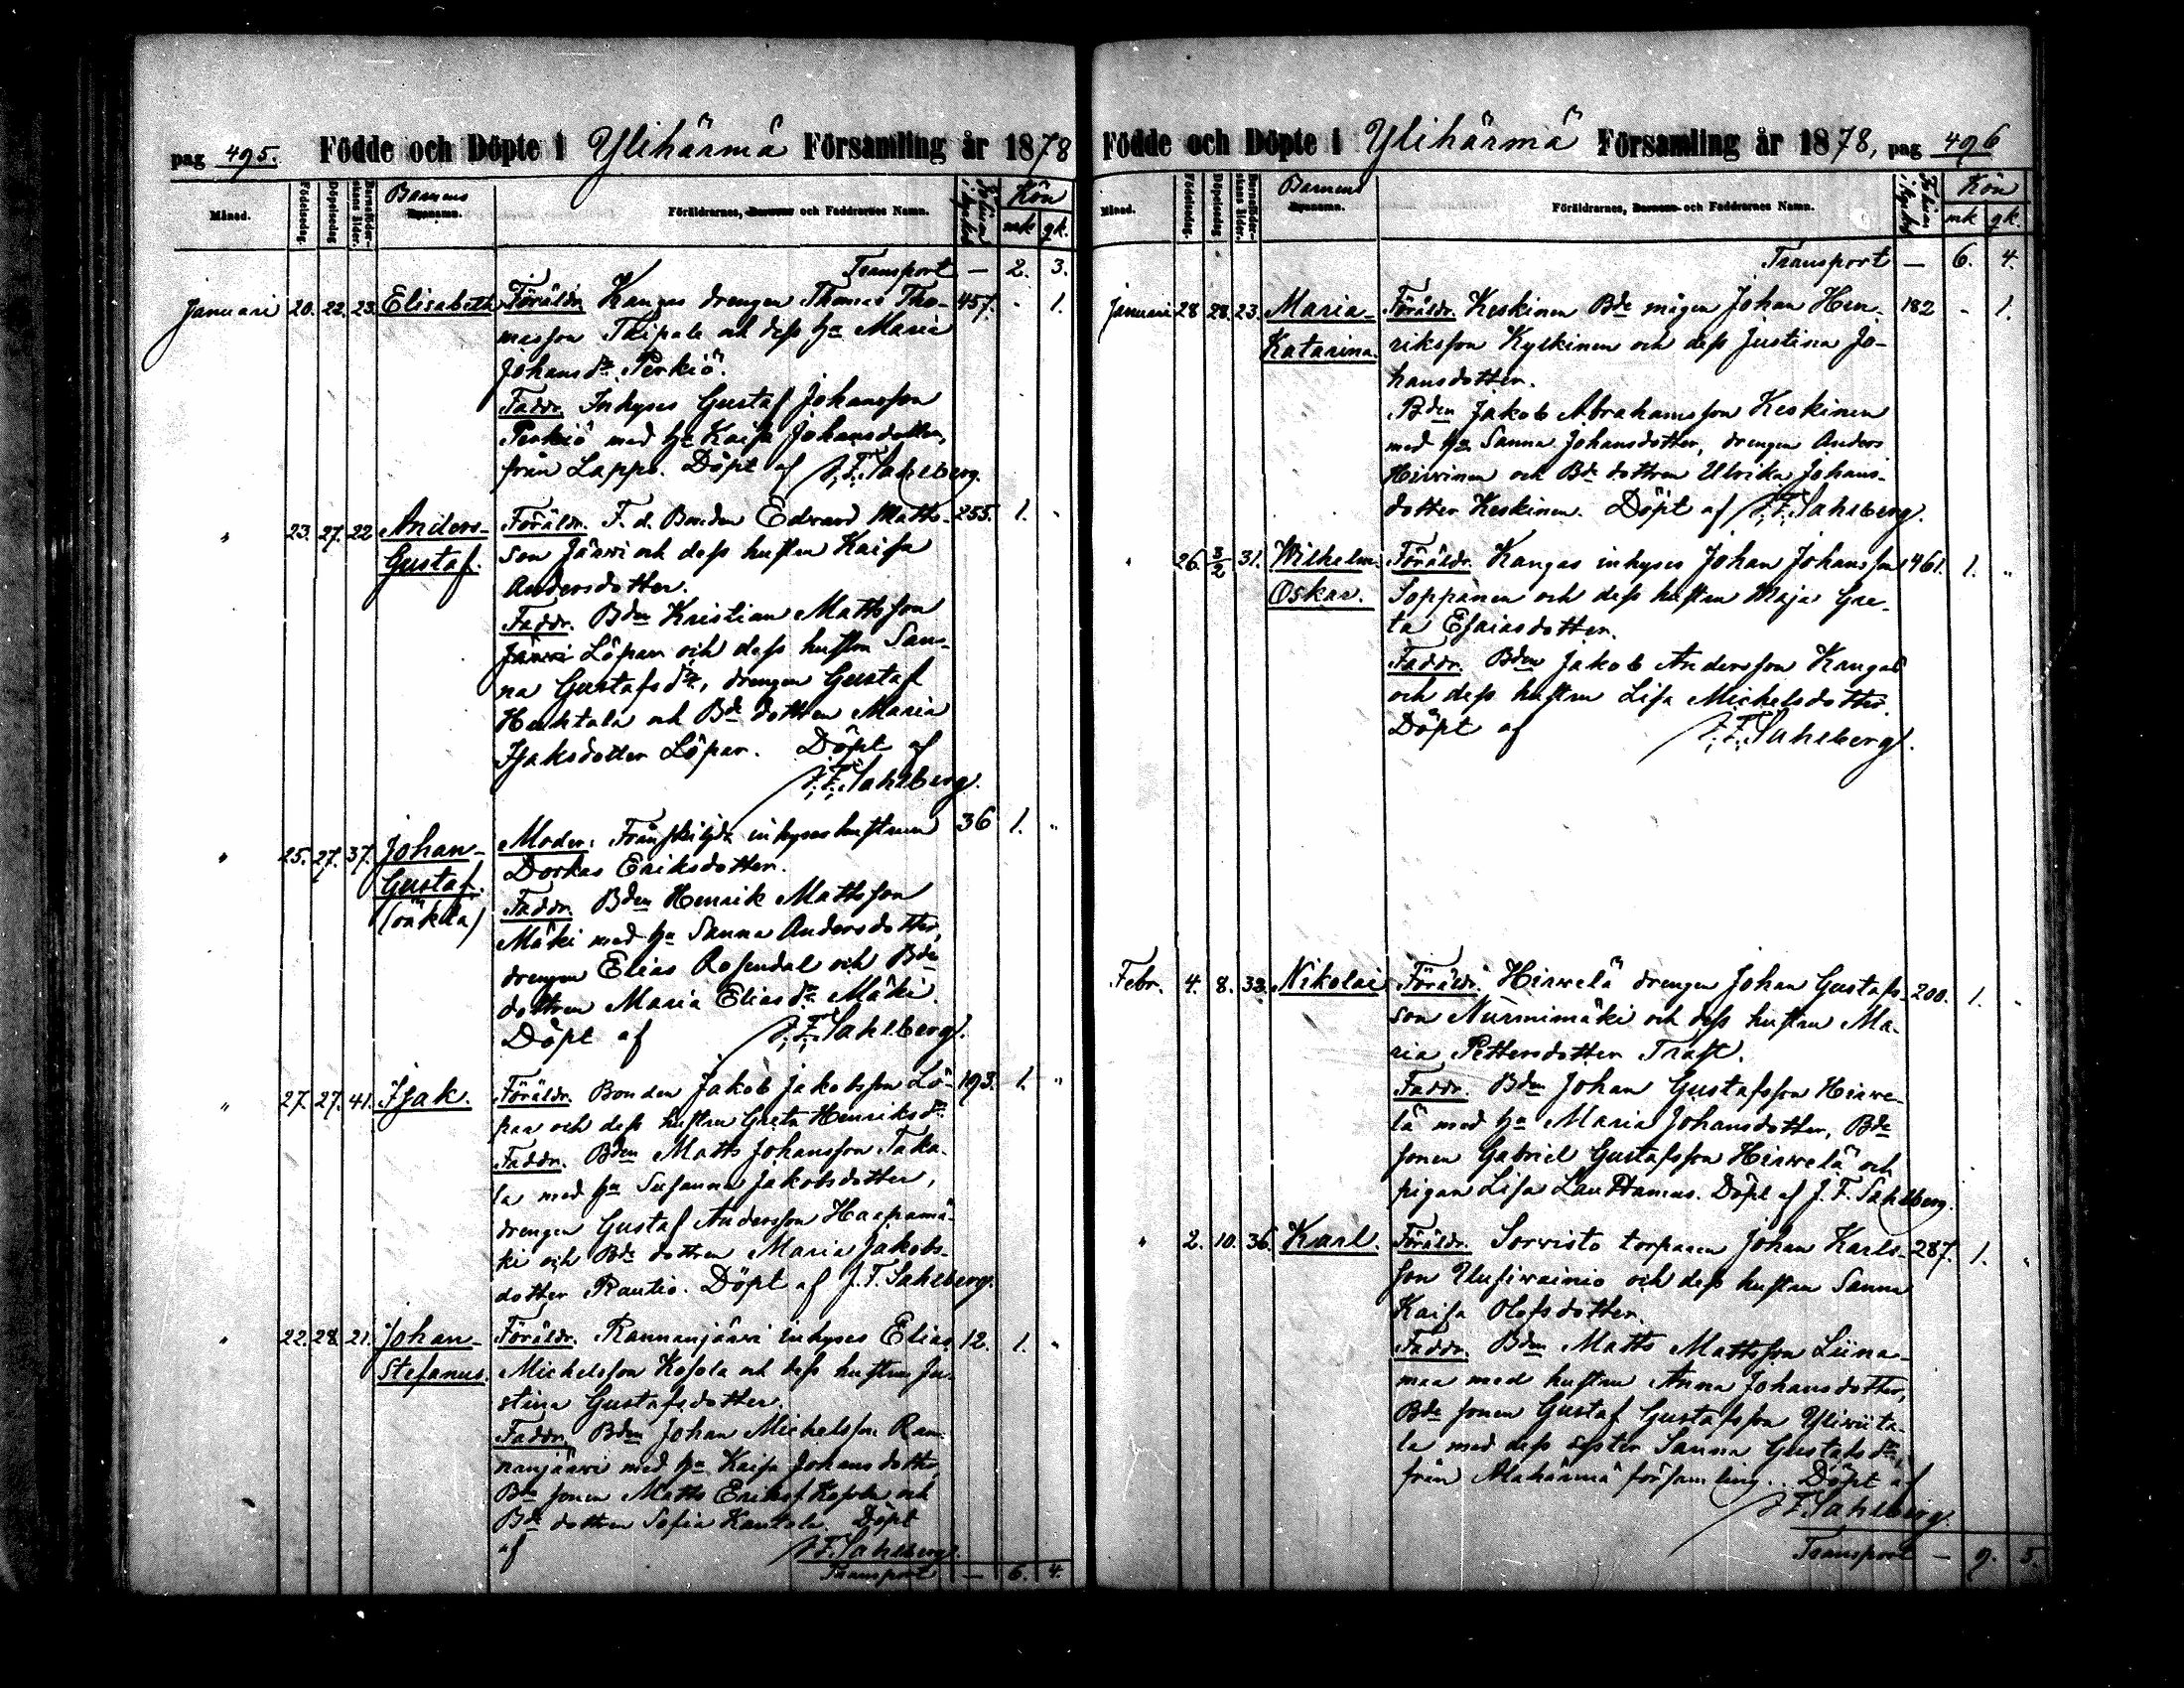 pag 495. Födde och Döpte i Ylihärmä Församling år 1878
Månad. Födelsedag. Döpelsedag Barnaföderskans ålder. Barnens Föräldrarnes, Barnens och Faddrarnes Namn. Kön
mk qk.
Transport — 2. 3.
Januari 20. 22. 23. Elisabeth Föräldr. Kangas drengen Thomas Tho- 457. " 1.
masson Thipale och dess ha Maria
Johansdr Perkiö.
Faddr. Inhyses Gustaf Johansson
Perkiö med ha Kaisa Johansdotter,
från Lappo. Döpt af J. F. Sahlberg.
" 23. 27. 22 Anders- Föräldr. F. d. Bonden Edvard Matts- 255. 1. "
Gustaf. son Järwi och dess hustru Kaisa
Andersdotter.
Faddr. Bden Kristian Mattsson
Järwi Löpar och dess hustru San-
na Gustafsdr, drengen Gustaf
Huhtala och Bde dottren Maria
Isaksdotter Löpar. Döpt af
J. F. Sahlberg.
" 25. 27. 37. Johan- Moder: Frånskilda inhyses hustrun 36 1. "
Gustaf. Dorkas Eriksdotter.
(oäkta) Faddr. Bden Henrik Mattsson
Mäki med ha Sanna Andersdotter,
drengen Elias Rosendal och Bde
dottren Maria Eliasdr Mäki.
Döpt af J. F. Sahlberg.
" 27. 27. 41. Isak. Föräldr. Bonden Jakob Jakobsson Lö- 193. 1. "
par och dess hustru Greta Henriksdr
Faddr. Bden Matts Johansson Taka-
la med ha Susanna Jakobsdotter,
drengen Gustaf Andersson Haapamä-
ki och Bde dottren Maria Jakobs-
dotter Rautio. Döpt af J. F. Sahlberg.
" 22. 28. 21. Johan- Föräldr. Rannanjärwi inhyses Elias 12. 1. "
Stefanus. Michelsson Kosola och dess hustru Ju-
stina Gustafsdotter.
Faddr. Bden Johan Michelsson Ran-
nanjärwi med ha Kaisa Johansdotter,
Bde sonen Matts Eriks. Kosola och
Bde dottren Sofia Kantola. Döpt
af J. F. Sahlberg.
Transport — 6. 4.
Födde och Döpte i Ylihärmä Församling år 1878, pag 496
Månad. Födelsedag. Döpelsedag Barnaföderskans ålder. Barnens Föräldrarnes, Barnens och Faddrarnes Namn. Kön
mk qk.
Transport — 6. 4.
Januari 28 28. 23. Maria- Föräldr. Keskinen Bde mågen Johan Hen- 182 " 1.
Katarina. riksson Kyrkinen och dess Justina Jo-
hansdotter.
Bden Jakob Abrahamsson Keskinen
med ha Sanna Johansdotter, drengen Anders
Hirvinen och Bde dottren Ulrika Johans-
dotter Keskinen. Döpt af J. F. Sahlberg.
" 26. 3/2 31. Wilhelm- Föräldr. Kangas inhyses Johan Johansson 461. 1. "
Oskar. Soppanen och dess hustru Maja Gre-
ta Esaiasdotter.
Faddr. Bden Jakob Andersson Kangas
och dess hustru Lisa Michelsdotter.
Döpt af J. F. Sahlberg.
Febr. 4. 8. 33. Nikolai Föräldr. Hirwelä drengen Johan Gustafs- 200. 1. "
son Nurmimäki och dess hustru Ma-
ria Pettersdotter Trast.
Faddr. Bden Johan Gustafsson Hirwe-
lä med ha Maria Johansdotter, Bde
sonen Gabriel Gustafsson Hirwelä och
pigan Lisa Lauttamus. Döpt af J. F. Sahlberg.
" 2. 10. 36. Karl. Föräldr. Sorvisto torparen Johan Karls- 287. 1. "
son Uusiwainio och dess hustru Sanna
Kaisa Olofsdotter.
Faddr. Bden Matts Mattsson Liina-
maa med hustru Anna Johansdotter,
Bde sonen Gustaf Gustafsson Yliwiita-
la med dess syster Sanna Gustafsdr,
från Alahärmä församling. Döpt af
J. F. Sahlberg.
Transport — 9. 5.